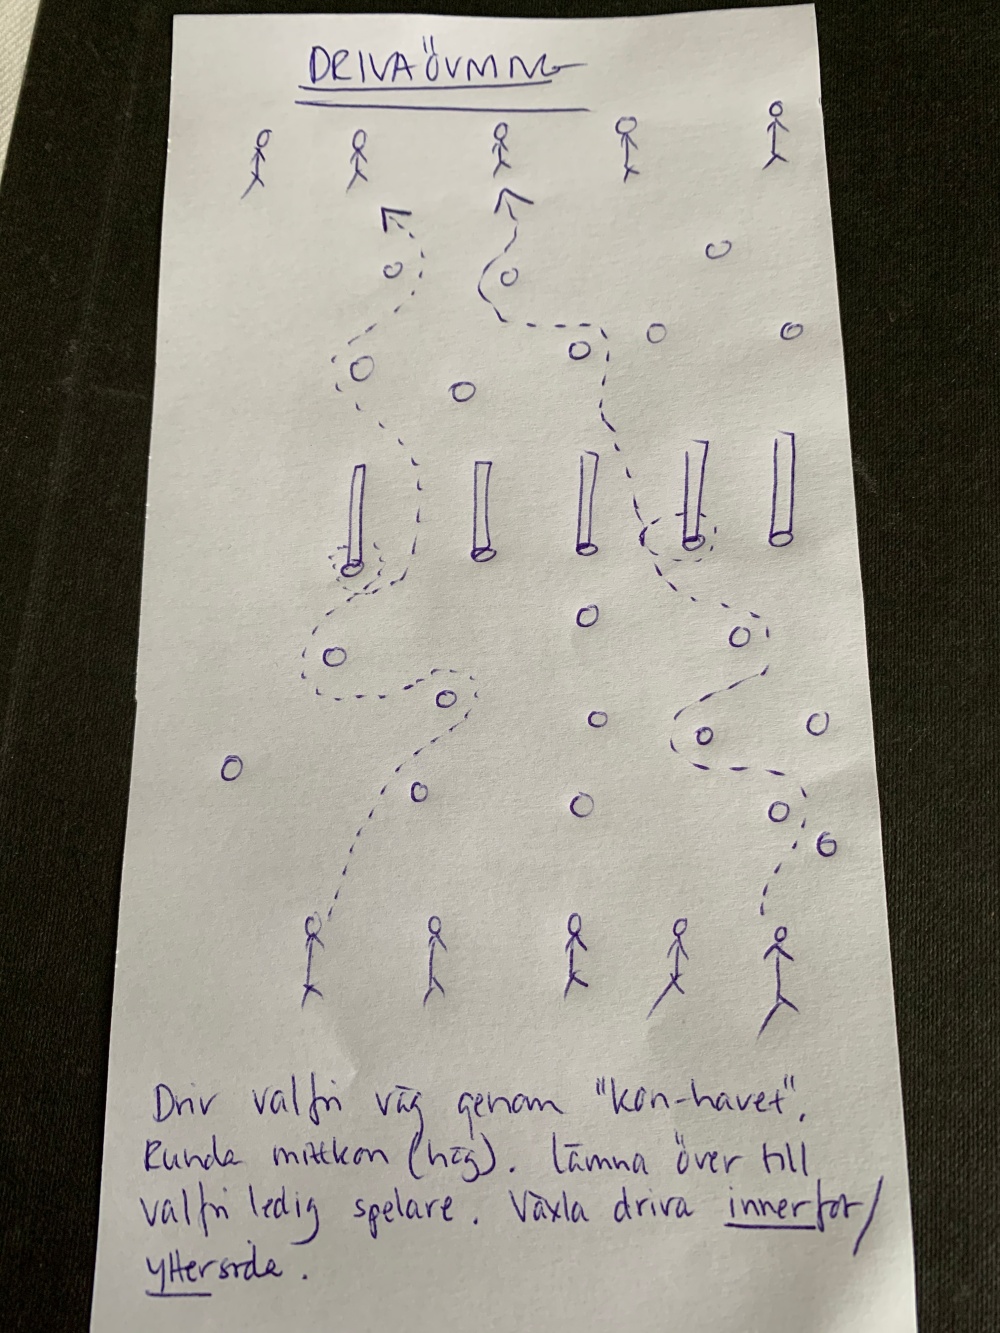 DRIVAÖVNING
Driv valfri väg genom "kon-havet".
Runda mittkon (hög). Lämna över till
valfri ledig spelare. Växla driva innerfot/
yttersida.